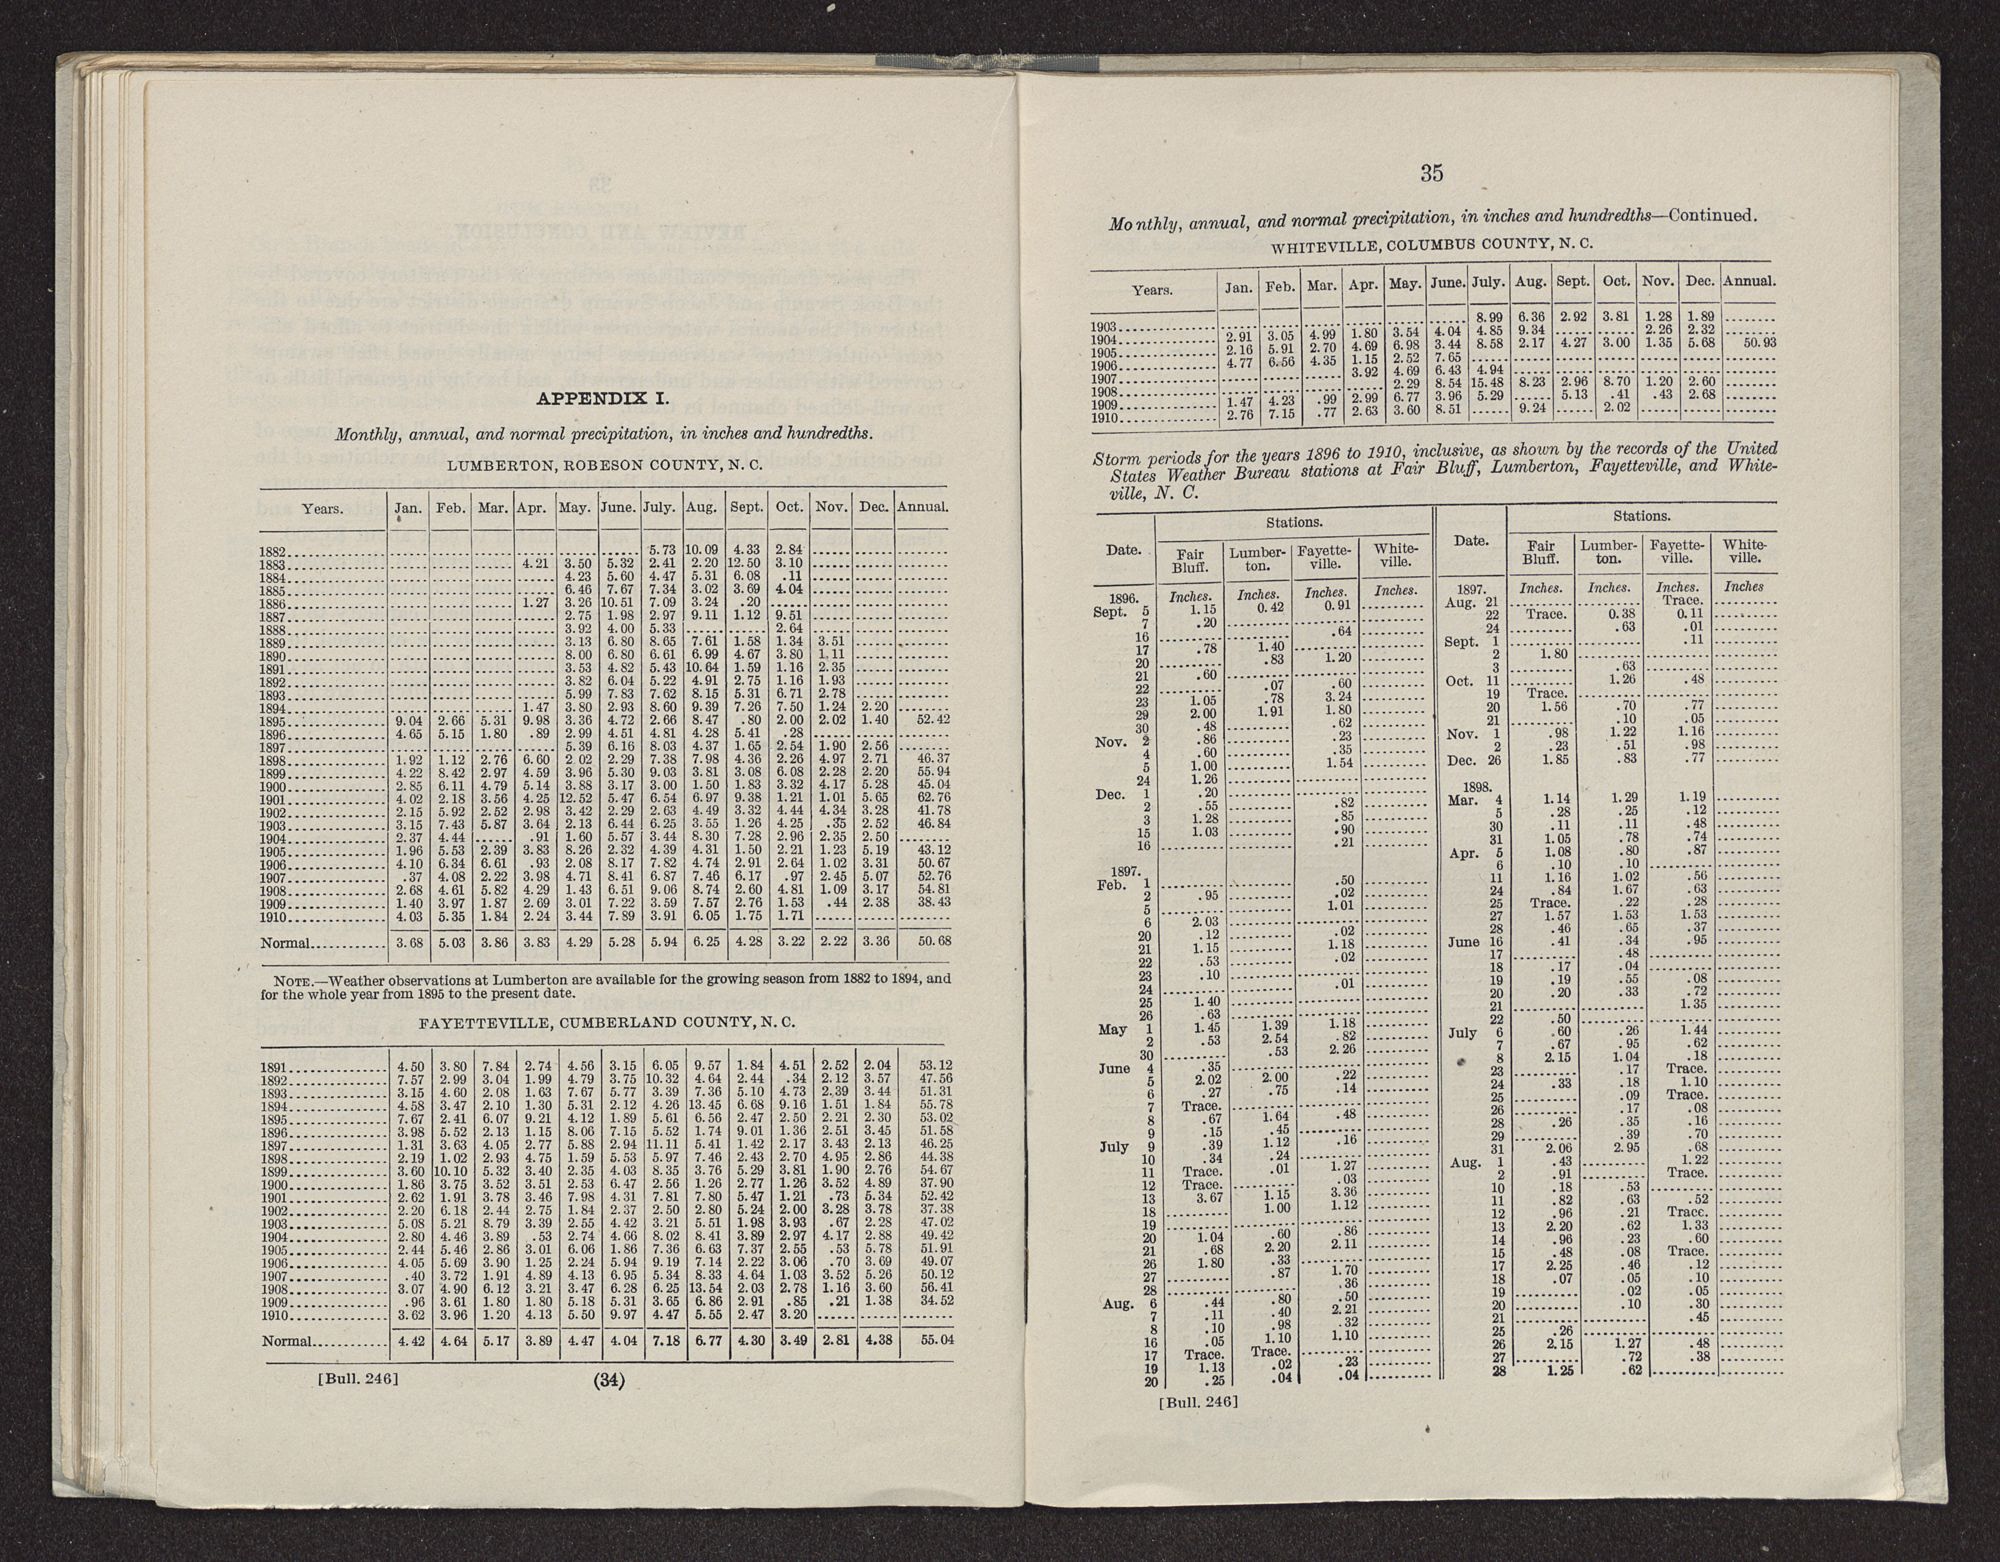 APPENDIX I.
Monthly, annual, and normal precipitation, in inches and hundredths.
LUMBERTON, ROBESON COUNTY, N. C.
Years. Jan. Feb. Mar. Apr. May. June. July. Aug. Sept. Oct. Nov. Dec. Annual.
1882 5.73 10.09 4.33 2.84
1883 4.21 3.50 5.32 2.41 2.20 12.50 3.10
1884 4.23 5.60 4.47 5.31 6.08 .11
1885 6.46 7.67 7.34 3.02 3.69 4.04
1886 1.27 3.26 10.51 7.09 3.24 .20
1887 2.75 1.98 2.97 9.11 1.12 9.51
1888 3.92 4.00 5.33 2.64
1889 3.13 6.80 8.65 7.61 1.58 1.34 3.51
1890 8.00 6.80 6.61 6.99 4.67 3.80 1.11
1891 3.53 4.82 5.43 10.64 1.59 1.16 2.35
1892 3.82 6.04 5.22 4.91 2.75 1.16 1.93
1893 5.99 7.83 7.62 8.15 5.31 6.71 2.78
1894 1.47 3.80 2.93 8.60 9.39 7.26 7.50 1.24 2.20
1895 9.04 2.66 5.31 9.98 3.36 4.72 2.66 8.47 .80 2.00 2.02 1.40 52.42
1896 4.65 5.15 1.80 .89 2.99 4.51 4.81 4.28 5.41 .28
1897 5.39 6.16 8.03 4.37 1.65 2.54 1.90 2.56
1898 1.92 1.12 2.76 6.60 2.02 2.29 7.38 7.98 4.36 2.26 4.97 2.71 46.37
1899 4.22 8.42 2.97 4.59 3.96 5.30 9.03 3.81 3.08 6.08 2.28 2.20 55.94
1900 2.85 6.11 4.79 5.14 3.88 3.17 3.00 1.50 1.83 3.32 4.17 5.28 45.04
1901 4.02 2.18 3.56 4.25 12.52 5.47 6.54 6.97 9.38 1.21 1.01 5.65 62.76
1902 2.15 5.92 2.52 2.98 3.42 2.29 2.63 4.49 3.32 4.44 4.34 3.28 41.78
1903 3.15 7.43 5.87 3.64 2.13 6.44 6.25 3.55 1.26 4.25 .35 2.52 46.84
1904 2.37 4.44 .91 1.60 5.57 3.44 8.30 7.28 2.96 2.35 2.50
1905 1.96 5.53 2.39 3.83 8.26 2.32 4.39 4.31 1.50 2.21 1.23 5.19 43.12
1906 4.10 6.34 6.61 .93 2.08 8.17 7.82 4.74 2.91 2.64 1.02 3.31 50.67
1907 .37 4.08 2.22 3.98 4.71 8.41 6.87 7.46 6.17 .97 2.45 5.07 52.76
1908 2.68 4.61 5.82 4.29 1.43 6.51 9.06 8.74 2.60 4.81 1.09 3.17 54.81
1909 1.40 3.97 1.87 2.69 3.01 7.22 3.59 7.57 2.76 1.53 .44 2.38 38.43
1910 4.03 5.35 1.84 2.24 3.44 7.89 3.91 6.05 1.75 1.71
Normal 3.68 5.03 3.86 3.83 4.29 5.28 5.94 6.25 4.28 3.22 2.22 3.36 50.68
NOTE.—Weather observations at Lumberton are available for the growing season from 1882 to 1894, and
for the whole year from 1895 to the present date.
FAYETTEVILLE, CUMBERLAND COUNTY, N. C.
1891 4.50 3.80 7.84 2.74 4.56 3.15 6.05 9.57 1.84 4.51 2.52 2.04 53.12
1892 7.57 2.99 3.04 1.99 4.79 3.75 10.32 4.64 2.44 .34 2.12 3.57 47.56
1893 3.15 4.60 2.08 1.63 7.67 5.77 3.39 7.36 5.10 4.73 2.39 3.44 51.31
1894 4.58 3.47 2.10 1.30 5.31 2.12 4.26 13.45 6.68 9.16 1.51 1.84 55.78
1895 7.67 2.41 6.07 9.21 4.12 1.89 5.61 6.56 2.47 2.50 2.21 2.30 53.02
1896 3.98 5.52 2.13 1.15 8.06 7.15 5.52 1.74 9.01 1.36 2.51 3.45 51.58
1897 1.31 3.63 4.05 2.77 5.88 2.94 11.11 5.41 1.42 2.17 3.43 2.13 46.25
1898 2.19 1.02 2.93 4.75 1.59 5.53 5.97 7.46 2.43 2.70 4.95 2.86 44.38
1899 3.60 10.10 5.32 3.40 2.35 4.03 8.35 3.76 5.29 3.81 1.90 2.76 54.67
1900 1.86 3.75 3.52 3.51 2.53 6.47 2.56 1.26 2.77 1.26 3.52 4.89 37.90
1901 2.62 1.91 3.78 3.46 7.98 4.31 7.81 7.80 5.47 1.21 .73 5.34 52.42
1902 2.20 6.18 2.44 2.75 1.84 2.37 2.50 2.80 5.24 2.00 3.28 3.78 37.38
1903 5.08 5.21 8.79 3.39 2.55 4.42 3.21 5.51 1.98 3.93 .67 2.28 47.02
1904 2.80 4.46 3.89 .53 2.74 4.66 8.02 8.41 3.89 2.97 4.17 2.88 49.42
1905 2.44 5.46 2.86 3.01 6.06 1.86 7.36 6.63 7.37 2.55 .53 5.78 51.91
1906 4.05 5.69 3.90 1.25 2.24 5.94 9.19 7.14 2.22 3.06 .70 3.69 49.07
1907 .40 3.72 1.91 4.89 4.13 6.95 5.34 8.33 4.64 1.03 3.52 5.26 50.12
1908 3.07 4.90 6.12 3.21 3.47 6.28 6.25 13.54 2.03 2.78 1.16 3.60 56.41
1909 .96 3.61 1.80 1.80 5.18 5.31 3.65 6.86 2.91 .85 .21 1.38 34.52
1910 3.62 3.96 1.20 4.13 5.50 9.97 4.47 5.55 2.47 3.20
Normal 4.42 4.64 5.17 3.89 4.47 4.04 7.18 6.77 4.30 3.49 2.81 4.38 55.04
[Bull. 246] (34)
35
Monthly, annual, and normal precipitation, in inches and hundredths—Continued.
WHITEVILLE, COLUMBUS COUNTY, N. C.
Years. Jan. Feb. Mar. Apr. May. June. July. Aug. Sept. Oct. Nov. Dec. Annual.
1903 8.99 6.36 2.92 3.81 1.28 1.89
1904 2.91 3.05 4.99 1.80 3.54 4.04 4.85 9.34 2.26 2.32
1905 2.16 5.91 2.70 4.69 6.98 3.44 8.58 2.17 4.27 3.00 1.35 5.68 50.93
1906 4.77 6.56 4.35 1.15 2.52 7.65
1907 3.92 4.69 6.43 4.94
1908 2.29 8.54 15.48 8.23 2.96 8.70 1.20 2.60
1909 1.47 4.23 .99 2.99 6.77 3.96 5.29 5.13 .41 .43 2.68
1910 2.76 7.15 .77 2.63 3.60 8.51 9.24 2.02
Storm periods for the years 1896 to 1910, inclusive, as shown by the records of the United
States Weather Bureau stations at Fair Bluff, Lumberton, Fayetteville, and White-
ville, N. C.
Date. Stations.
Fair Bluff. Lumber-ton. Fayette-ville. White-ville.
1896. Inches. Inches. Inches. Inches.
Sept. 5 1.15 0.42 0.91
7 .20
16 .64
17 .78 1.40
20 .83 1.20
21 .60
22 .07 .60
23 1.05 .78 3.24
29 2.00 1.91 1.80
30 .48 .62
Nov. 2 .86 .23
4 .60 .35
5 1.00 1.54
24 1.26
Dec. 1 .20
2 .55 .82
3 1.28 .85
15 1.03 .90
16 .21
1897.
Feb. 1 .50
2 .95 .02
5 1.01
6 2.03
20 .12 .02
21 1.15 1.18
22 .53 .02
23 .10
24 .01
25 1.40
26 .63
May 1 1.45 1.39 1.18
2 .53 2.54 .82
30 .53 2.26
June 4 .35
5 2.02 2.00 .22
6 .27 .75 .14
7 Trace.
8 .67 1.64 .48
9 .15 .45
July 9 .39 1.12 .16
10 .34 .24
11 Trace. .01 1.27
12 Trace. .03
13 3.67 1.15 3.36
18 1.00 1.12
19
20 1.04 .60 .86
21 .68 2.20 2.11
26 1.80 .33
27 .87 1.70
28 .36
Aug. 6 .44 .80 .50
7 .11 .40 2.21
8 .10 .98 .32
16 .05 1.10 1.10
17 Trace. Trace.
19 1.13 .02 .23
20 .25 .04 .04
Date. Stations.
Fair Bluff. Lumber-ton. Fayette-ville. White-ville.
1897. Inches. Inches. Inches. Inches
Aug. 21 Trace.
22 Trace. 0.38 0.11
24 .63 .01
Sept. 1 .11
2 1.80
3 .63
Oct. 11 1.26 .48
19 Trace.
20 1.56 .70 .77
21 .10 .05
Nov. 1 .98 1.22 1.16
2 .23 .51 .98
Dec. 26 1.85 .83 .77
1898.
Mar. 4 1.14 1.29 1.19
5 .28 .25 .12
30 .11 .11 .48
31 1.05 .78 .74
Apr. 5 1.08 .80 .87
6 .10 .10
11 1.16 1.02 .56
24 .84 1.67 .63
25 Trace. .22 .28
27 1.57 1.53 1.53
28 .46 .65 .37
June 16 .41 .34 .95
17 .48
18 .17 .04
19 .19 .55 .08
20 .20 .33 .72
21 1.35
22 .50
July 6 .60 .26 1.44
7 .67 .95 .62
8 2.15 1.04 .18
23 .17 Trace.
24 .33 .18 1.10
25 .09 Trace.
26 .17 .08
28 .26 .35 .16
29 .39 .70
31 2.06 2.95 .68
Aug. 1 .43 1.22
2 .91 Trace.
10 .18 .53
11 .82 .63 .52
12 .96 .21 Trace.
13 2.20 .62 1.33
14 .96 .23 .60
15 .48 .08 Trace.
17 2.25 .46 .12
18 .07 .05 .10
19 .02 .05
20 .10 .30
21 .45
25 .26
26 2.15 1.27 .48
27 .72 .38
28 1.25 .62
[Bull. 246]